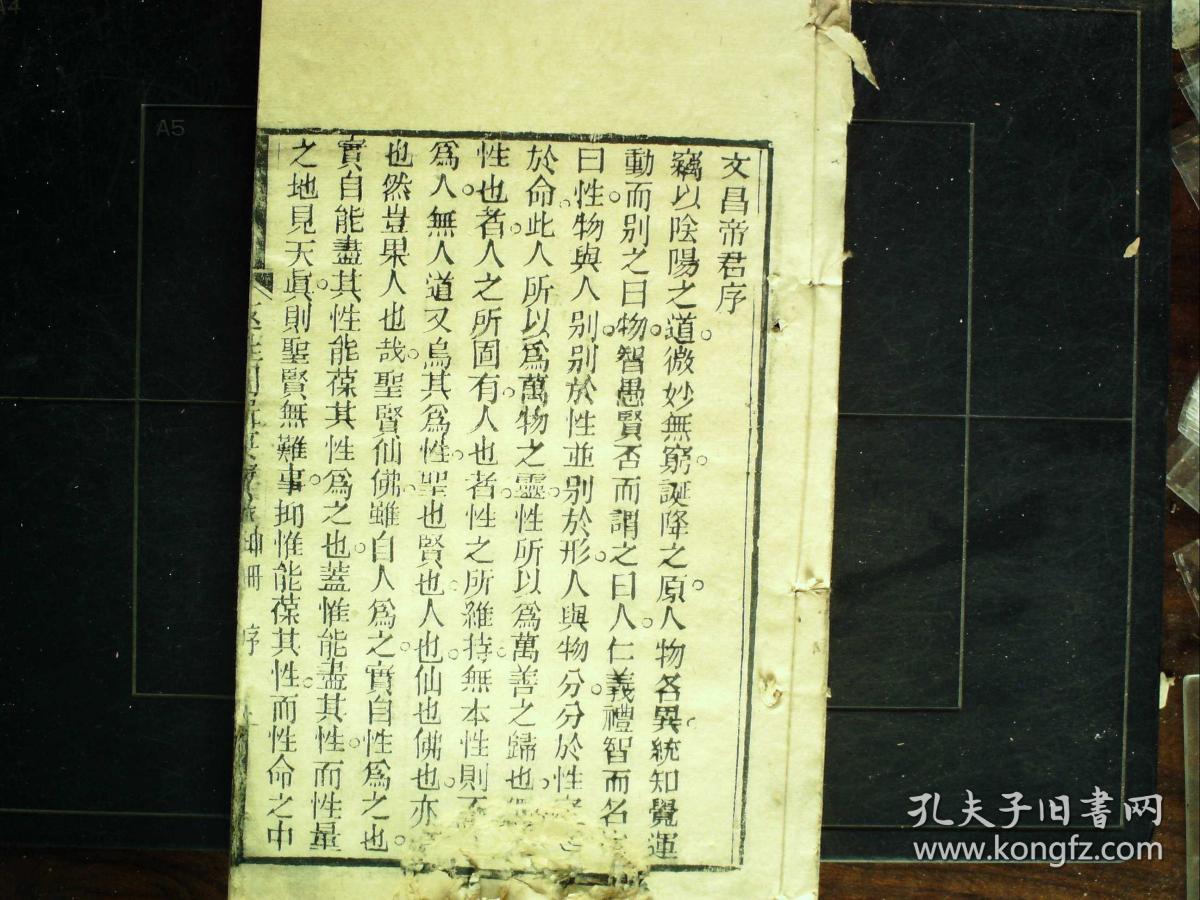 文昌帝君序
竊以陰陽之道微妙無窮誕降之原人物各異統知覺運
動而别之曰物智愚賢否而謂之曰人仁義禮智而名
曰性物與人别别於性並别於形人與物分分於性
於命此人所以爲萬物之靈性所以爲萬善之歸也
性也者人之所固有人也者性之所維持無本性則
爲人無人道又烏其爲性聖也賢也人也仙也佛也亦
也然豈果人也哉聖賢仙佛雖自人爲之實自性爲之也
實自能盡其性能葆其性爲之也蓋惟能盡其性而性量
之地見天眞則聖賢無難事抑惟能葆其性而性命之中
坤冊 序
A5
孔夫子旧书网
www.kongfz.com